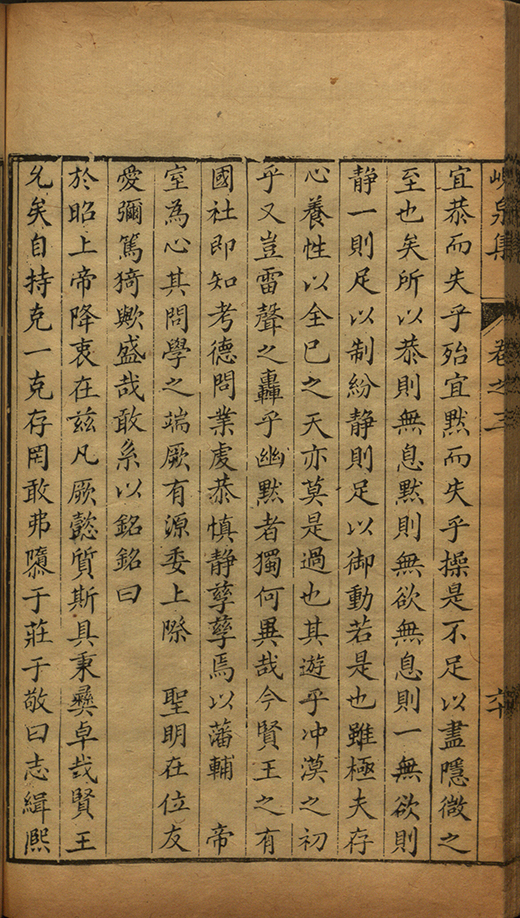 峴泉集 卷之三 六十
宜恭而失乎殆宜默而失乎操是不足以盡隱微之
至也矣所以恭則無息默則無欲無息則一無欲則
静一則足以制紛静則足以御動若是也雖極夫存
心養性以全已之天亦莫是過也其遊乎冲漠之初
乎又豈雷聲之轟乎幽默者獨何異哉今賢王之有
國社即知考德問業䖍恭慎静孳孳焉以藩輔 帝
室為心其問學之端厥有源委上際 聖明在位友
愛彌篤猗歟盛哉敢系以銘銘曰
於昭上帝降衷在兹凡厥懿質斯具秉彝卓哉賢王
允矣自持克一克存罔敢弗隳于莊于敬曰志緝熙